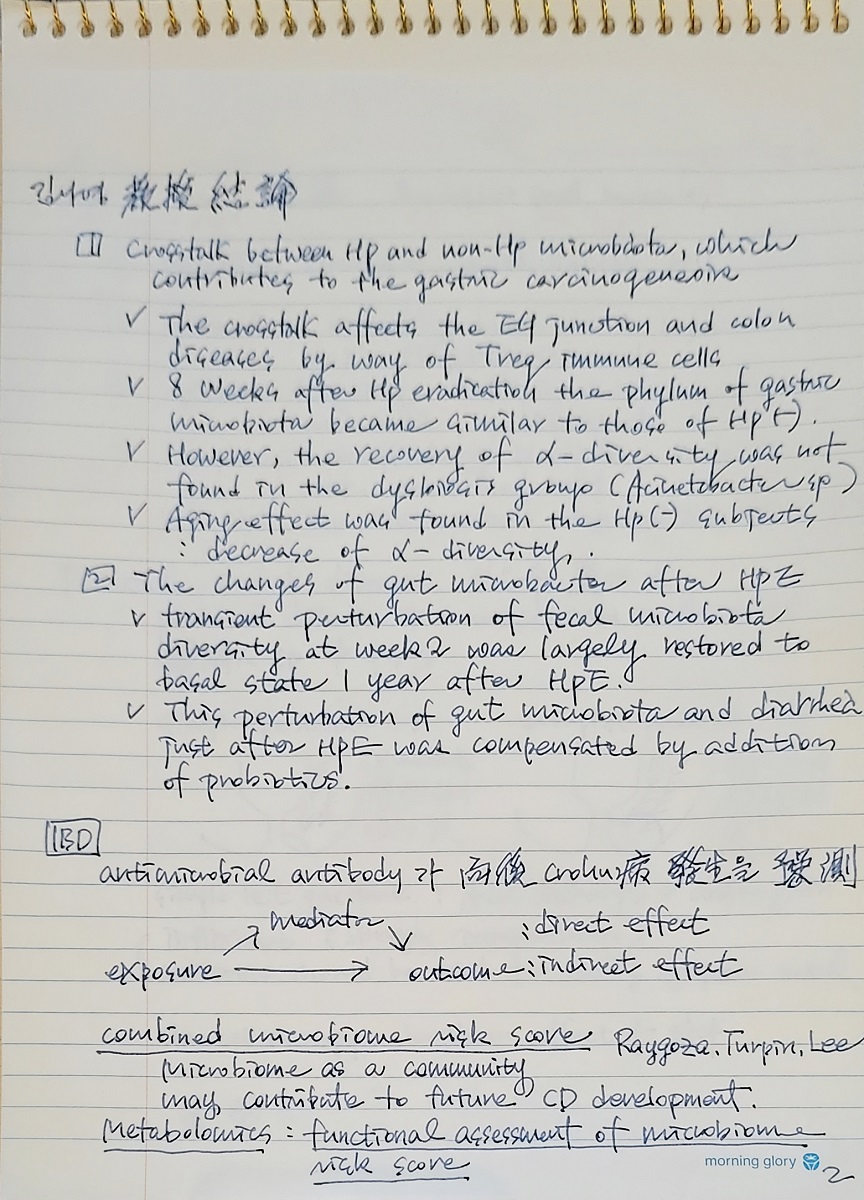 김나영 敎授 結論
[1] Crosstalk between Hp and non-Hp microbiota, which
contributes to the gastric carcinogenesis
✓ The crosstalk affects the EG junction and colon
diseases by way of Treg immune cells
✓ 8 weeks after Hp eradication the phylum of gastric
microbiota became similar to those of Hp(-).
✓ However, the recovery of α-diversity was not
found in the dysbiosis groups (Acinetobacter sp)
✓ Aging effect was found in the Hp(-) subjects
: decrease of α-diversity.
[2] The changes of gut microbacter after HpE
✓ transient perturbation of fecal microbiota
diversity at week 2 was largely restored to
basal state 1 year after HpE.
✓ This perturbation of gut microbiota and diarrhea
just after HpE was compensated by addition
of probiotics.
IBD
antimicrobial antibody가 向後 Crohn病 發生을 豫測
mediator
: direct effect
exposure → outcome : indirect effect
combined microbiome risk score Raygoza, Turpin, Lee
Microbiome as a community
may contribute to future CD development.
Metabolomics : functional assessment of microbiome
risk score
morning glory
2